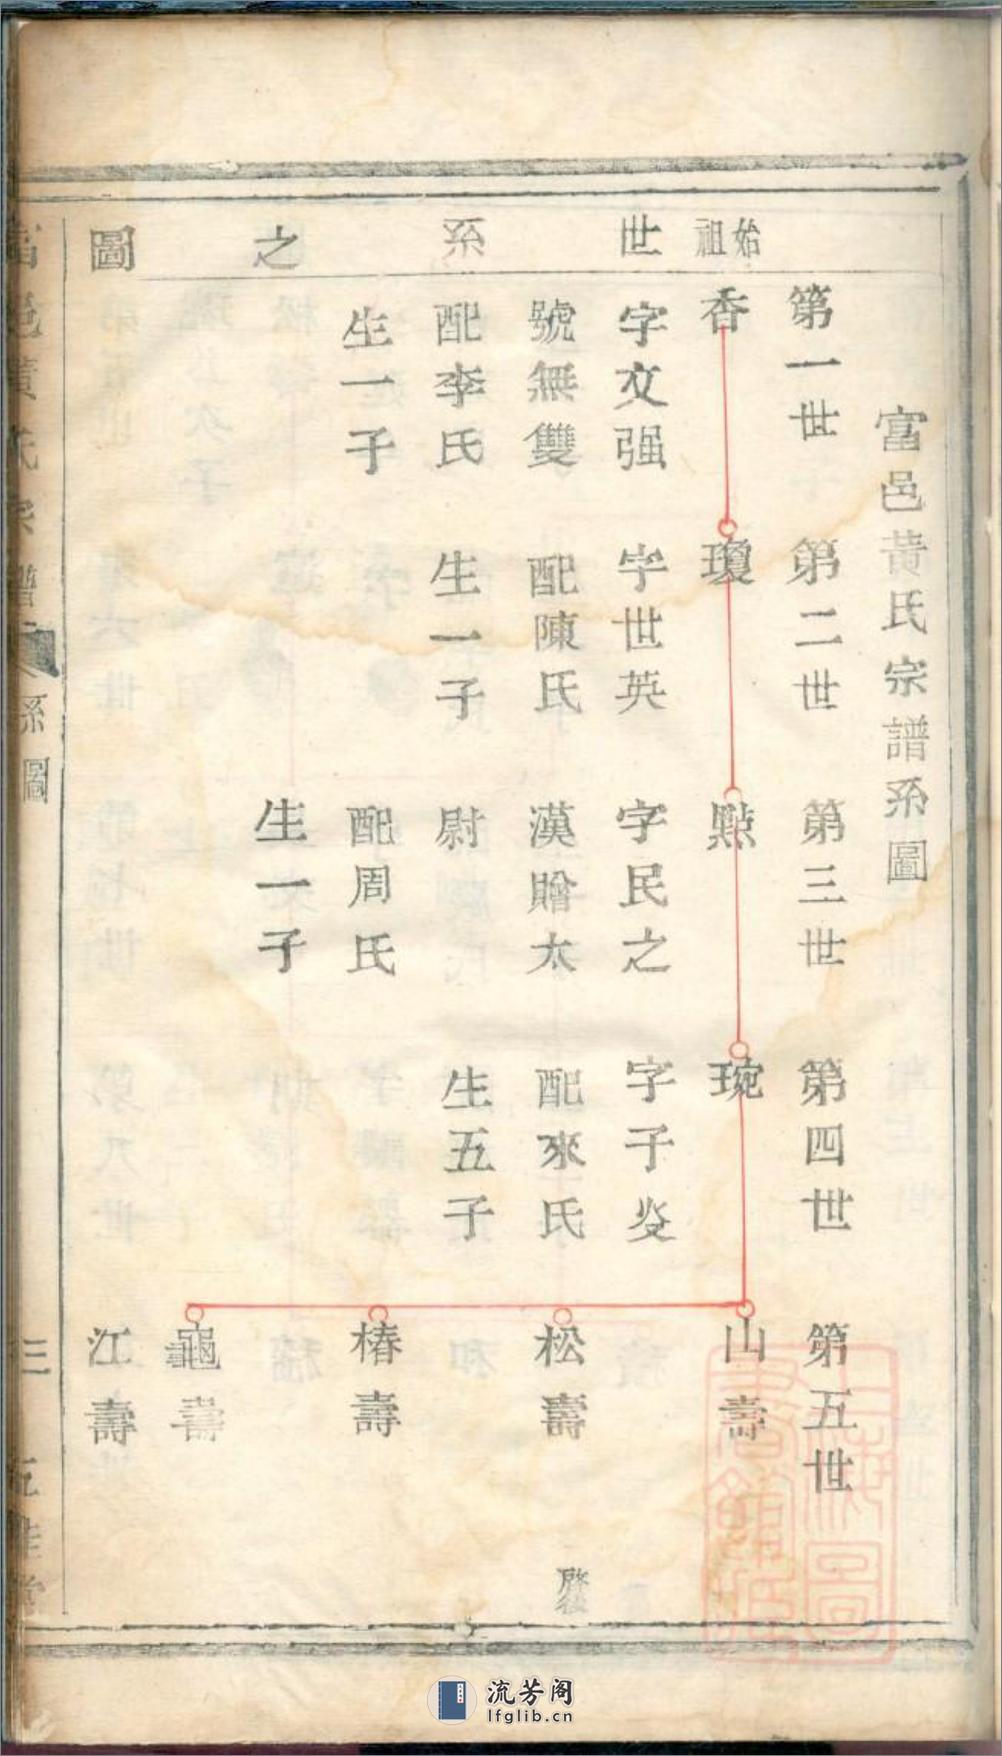 富邑黄氏宗譜系圖
始祖
世系之圖
第一世
香
字文强
號無雙
配李氏
生一子
第二世
瓊
字世英
配陳氏
生一子
第三世
㸃
字民之
漢贈太
尉
配周氏
生一子
第四世
琬
字子炎
配來氏
生五子
第五世
山壽
松壽
椿壽
龜壽
江壽
系圖
三
上海圖書館藏
流芳阁
lfglib.cn